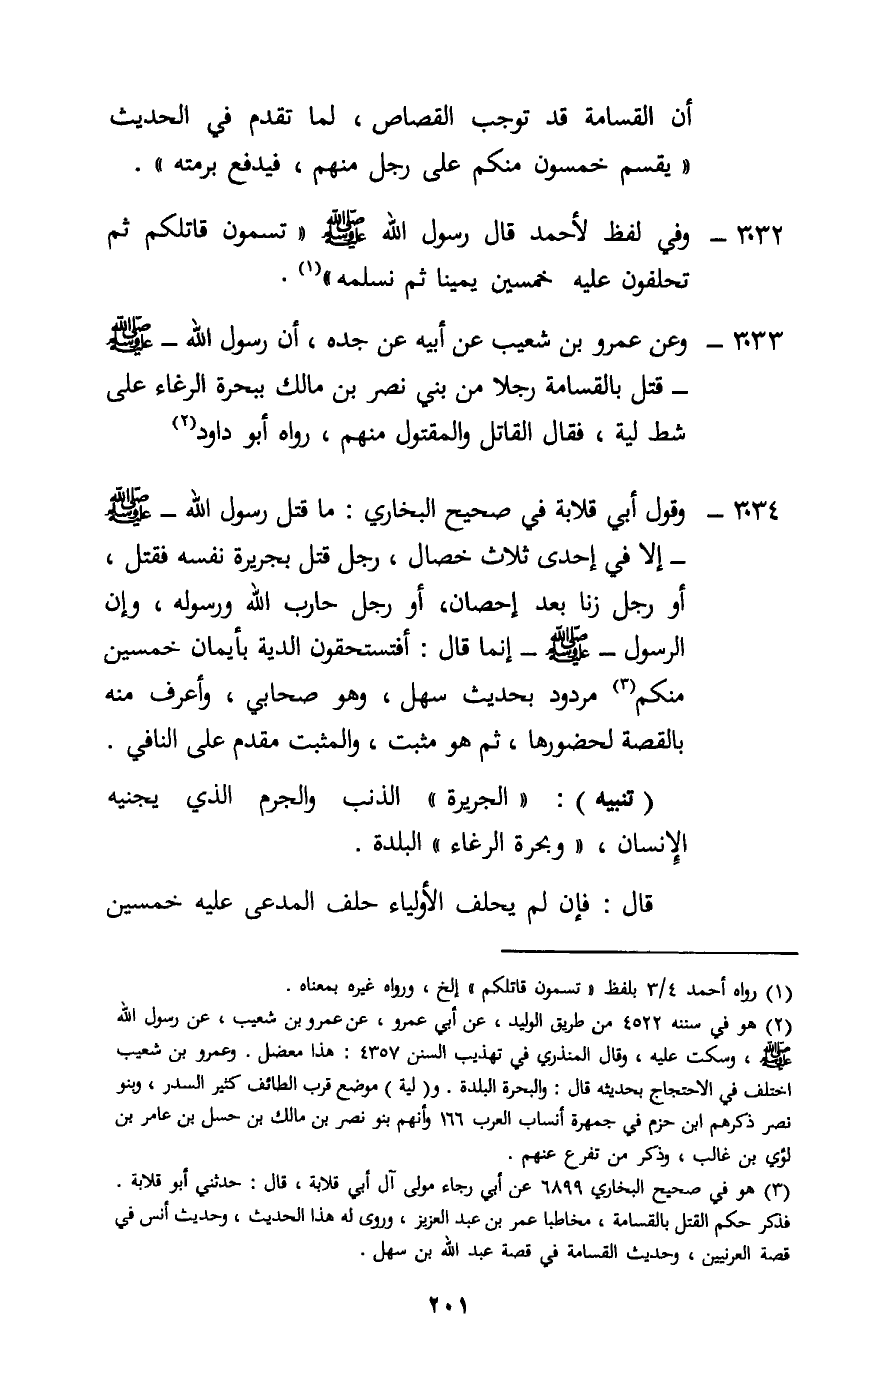 أن القسامة قد توجب القصاص ، لما تقدم في الحديث
« يقسم خمسون منكم على رجل منهم ، فيدفع برمته » .
٣٠٣٢ – وفي لفظ لأحمد قال رسول الله ﷺ « تسمون قاتلكم ثم
تحلفون عليه خمسين يمينا ثم نسلمه »(١) .
٣٠٣٣ – وعن عمرو بن شعيب عن أبيه عن جده ، أن رسول الله – ﷺ
– قتل بالقسامة رجلا من بني نصر بن مالك ببحرة الرغاء على
شط لية ، فقال القاتل والمقتول منهم ، رواه أبو داود(٢)
٣٠٣٤ – وقول أبي قلابة في صحيح البخاري : ما قتل رسول الله – ﷺ
– إلا في إحدى ثلاث خصال ، رجل قتل بجريرة نفسه فقتل ،
أو رجل زنا بعد إحصان، أو رجل حارب الله ورسوله ، وإن
الرسول – ﷺ – إنما قال : أفتستحقون الدية بأيمان خمسين
منكم(٣) مردود بحديث سهل ، وهو صحابي ، وأعرف منه
بالقصة لحضورها ، ثم هو مثبت ، والمثبت مقدم على النافي .
( تنبيه ) : « الجريرة » الذنب والجرم الذي يجنيه
الإنسان ، « وبحرة الرغاء » البلدة .
قال : فإن لم يحلف الأولياء حلف المدعى عليه خمسين
(١) رواه أحمد ٣/٤ بلفظ « تسمون قاتلكم » إلخ ، ورواه غيره بمعناه .
(٢) هو في سننه ٤٥٢٢ من طريق الوليد ، عن أبي عمرو ، عن عمرو بن شعيب ، عن رسول الله
ﷺ ، وسكت عليه ، وقال المنذري في تهذيب السنن ٤٣٥٧ : هذا معضل . وعمرو بن شعيب
اختلف في الاحتجاج بحديثه قال : والبحرة البلدة . و( لية ) موضع قرب الطائف كثير السدر ، وبنو
نصر ذكرهم ابن حزم في جمهرة أنساب العرب ١٦٦ وأنهم بنو نصر بن مالك بن حسل بن عامر بن
لؤي بن غالب ، وذكر من تفرع عنهم .
(٣) هو في صحيح البخاري ٦٨٩٩ عن أبي رجاء مولى آل أبي قلابة ، قال : حدثني أبو قلابة .
فذكر حكم القتل بالقسامة ، مخاطبا عمر بن عبد العزيز ، وروى له هذا الحديث ، وحديث أنس في
قصة العرنيين ، وحديث القسامة في قصة عبد الله بن سهل .
٢٠١